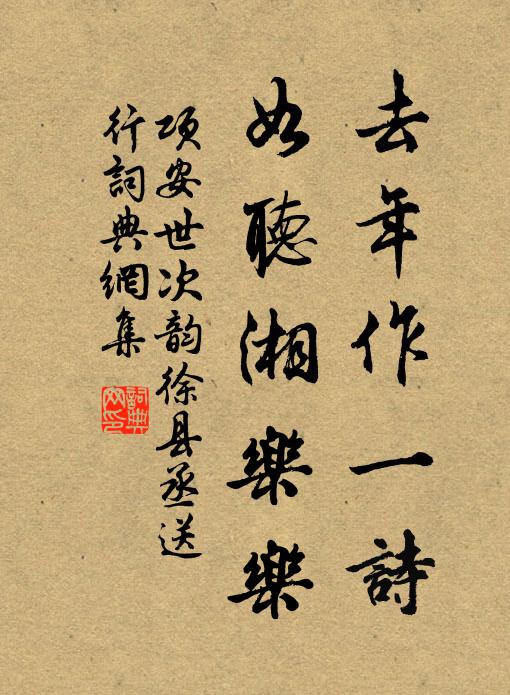 去年作一詩
如聽湘樂樂
項安世次韵徐县丞送
行詞典網集
詞典网印